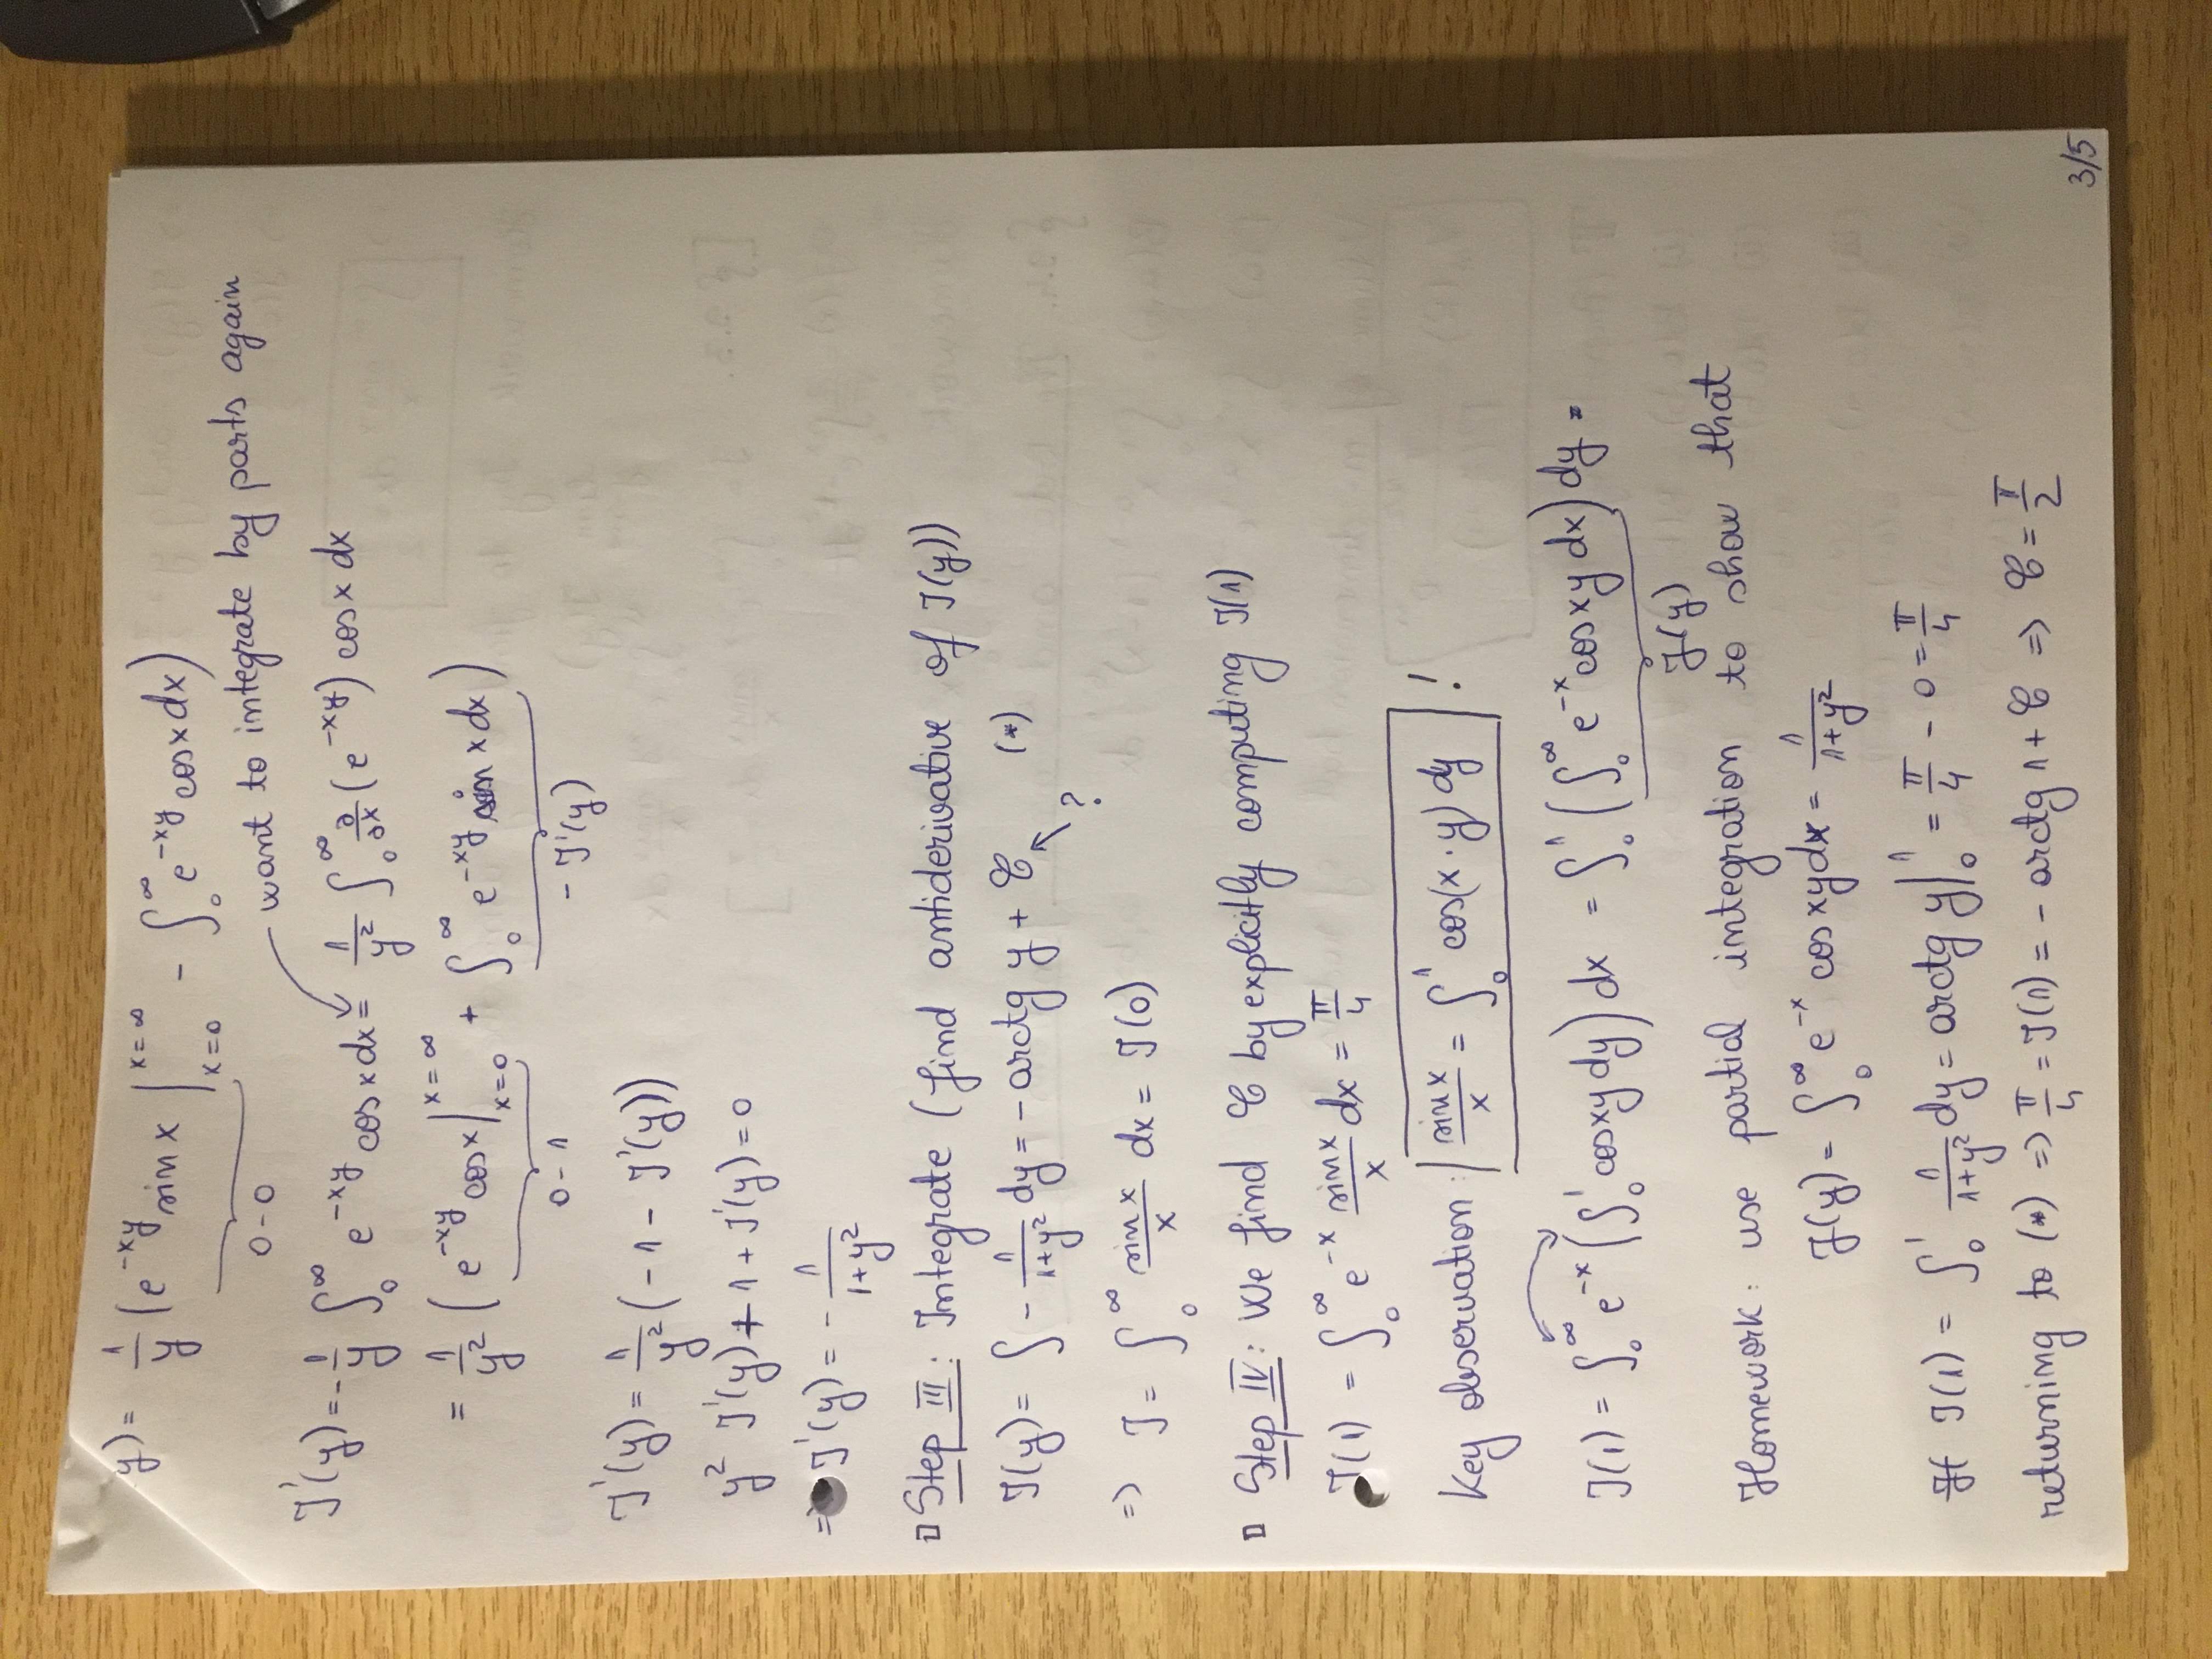 y) = 1/y (e^{-xy} sin x |_{x=0}^{x=∞} - ∫_0^∞ e^{-xy} cos x dx)
0-0
want to integrate by parts again
I'(y) = -1/y ∫_0^∞ e^{-xy} cos x dx = 1/y² ∫_0^∞ ∂/∂x (e^{-xy}) cos x dx
= 1/y² (e^{-xy} cos x |_{x=0}^{x=∞} + ∫_0^∞ e^{-xy} sin x dx)
0-1 - I'(y)
I'(y) = 1/y² (-1 - I'(y))
y² I'(y) + 1 + I'(y) = 0
=> I'(y) = - 1/(1+y²)
▯ Step III: Integrate (find antiderivative of I(y))
I(y) = ∫ - 1/(1+y²) dy = - arctg y + C (*)
?
=> I = ∫_0^∞ sin x/x dx = I(0)
▯ Step IV: We find C by explicitly computing I(1)
I(1) = ∫_0^∞ e^{-x} sin x/x dx = π/4
Key observation: sin x/x = ∫_0^1 cos(x·y) dy !
I(1) = ∫_0^∞ e^{-x} (∫_0^1 cos xy dy) dx = ∫_0^1 (∫_0^∞ e^{-x} cos xy dx) dy =
J(y)
Homework: use partial integration to show that
J(y) = ∫_0^∞ e^{-x} cos xy dx = 1/(1+y²)
I(1) = ∫_0^1 1/(1+y²) dy = arctg y |_0^1 = π/4 - 0 = π/4
returning to (*) => π/4 = I(1) = - arctg 1 + C => C = π/2
3/5